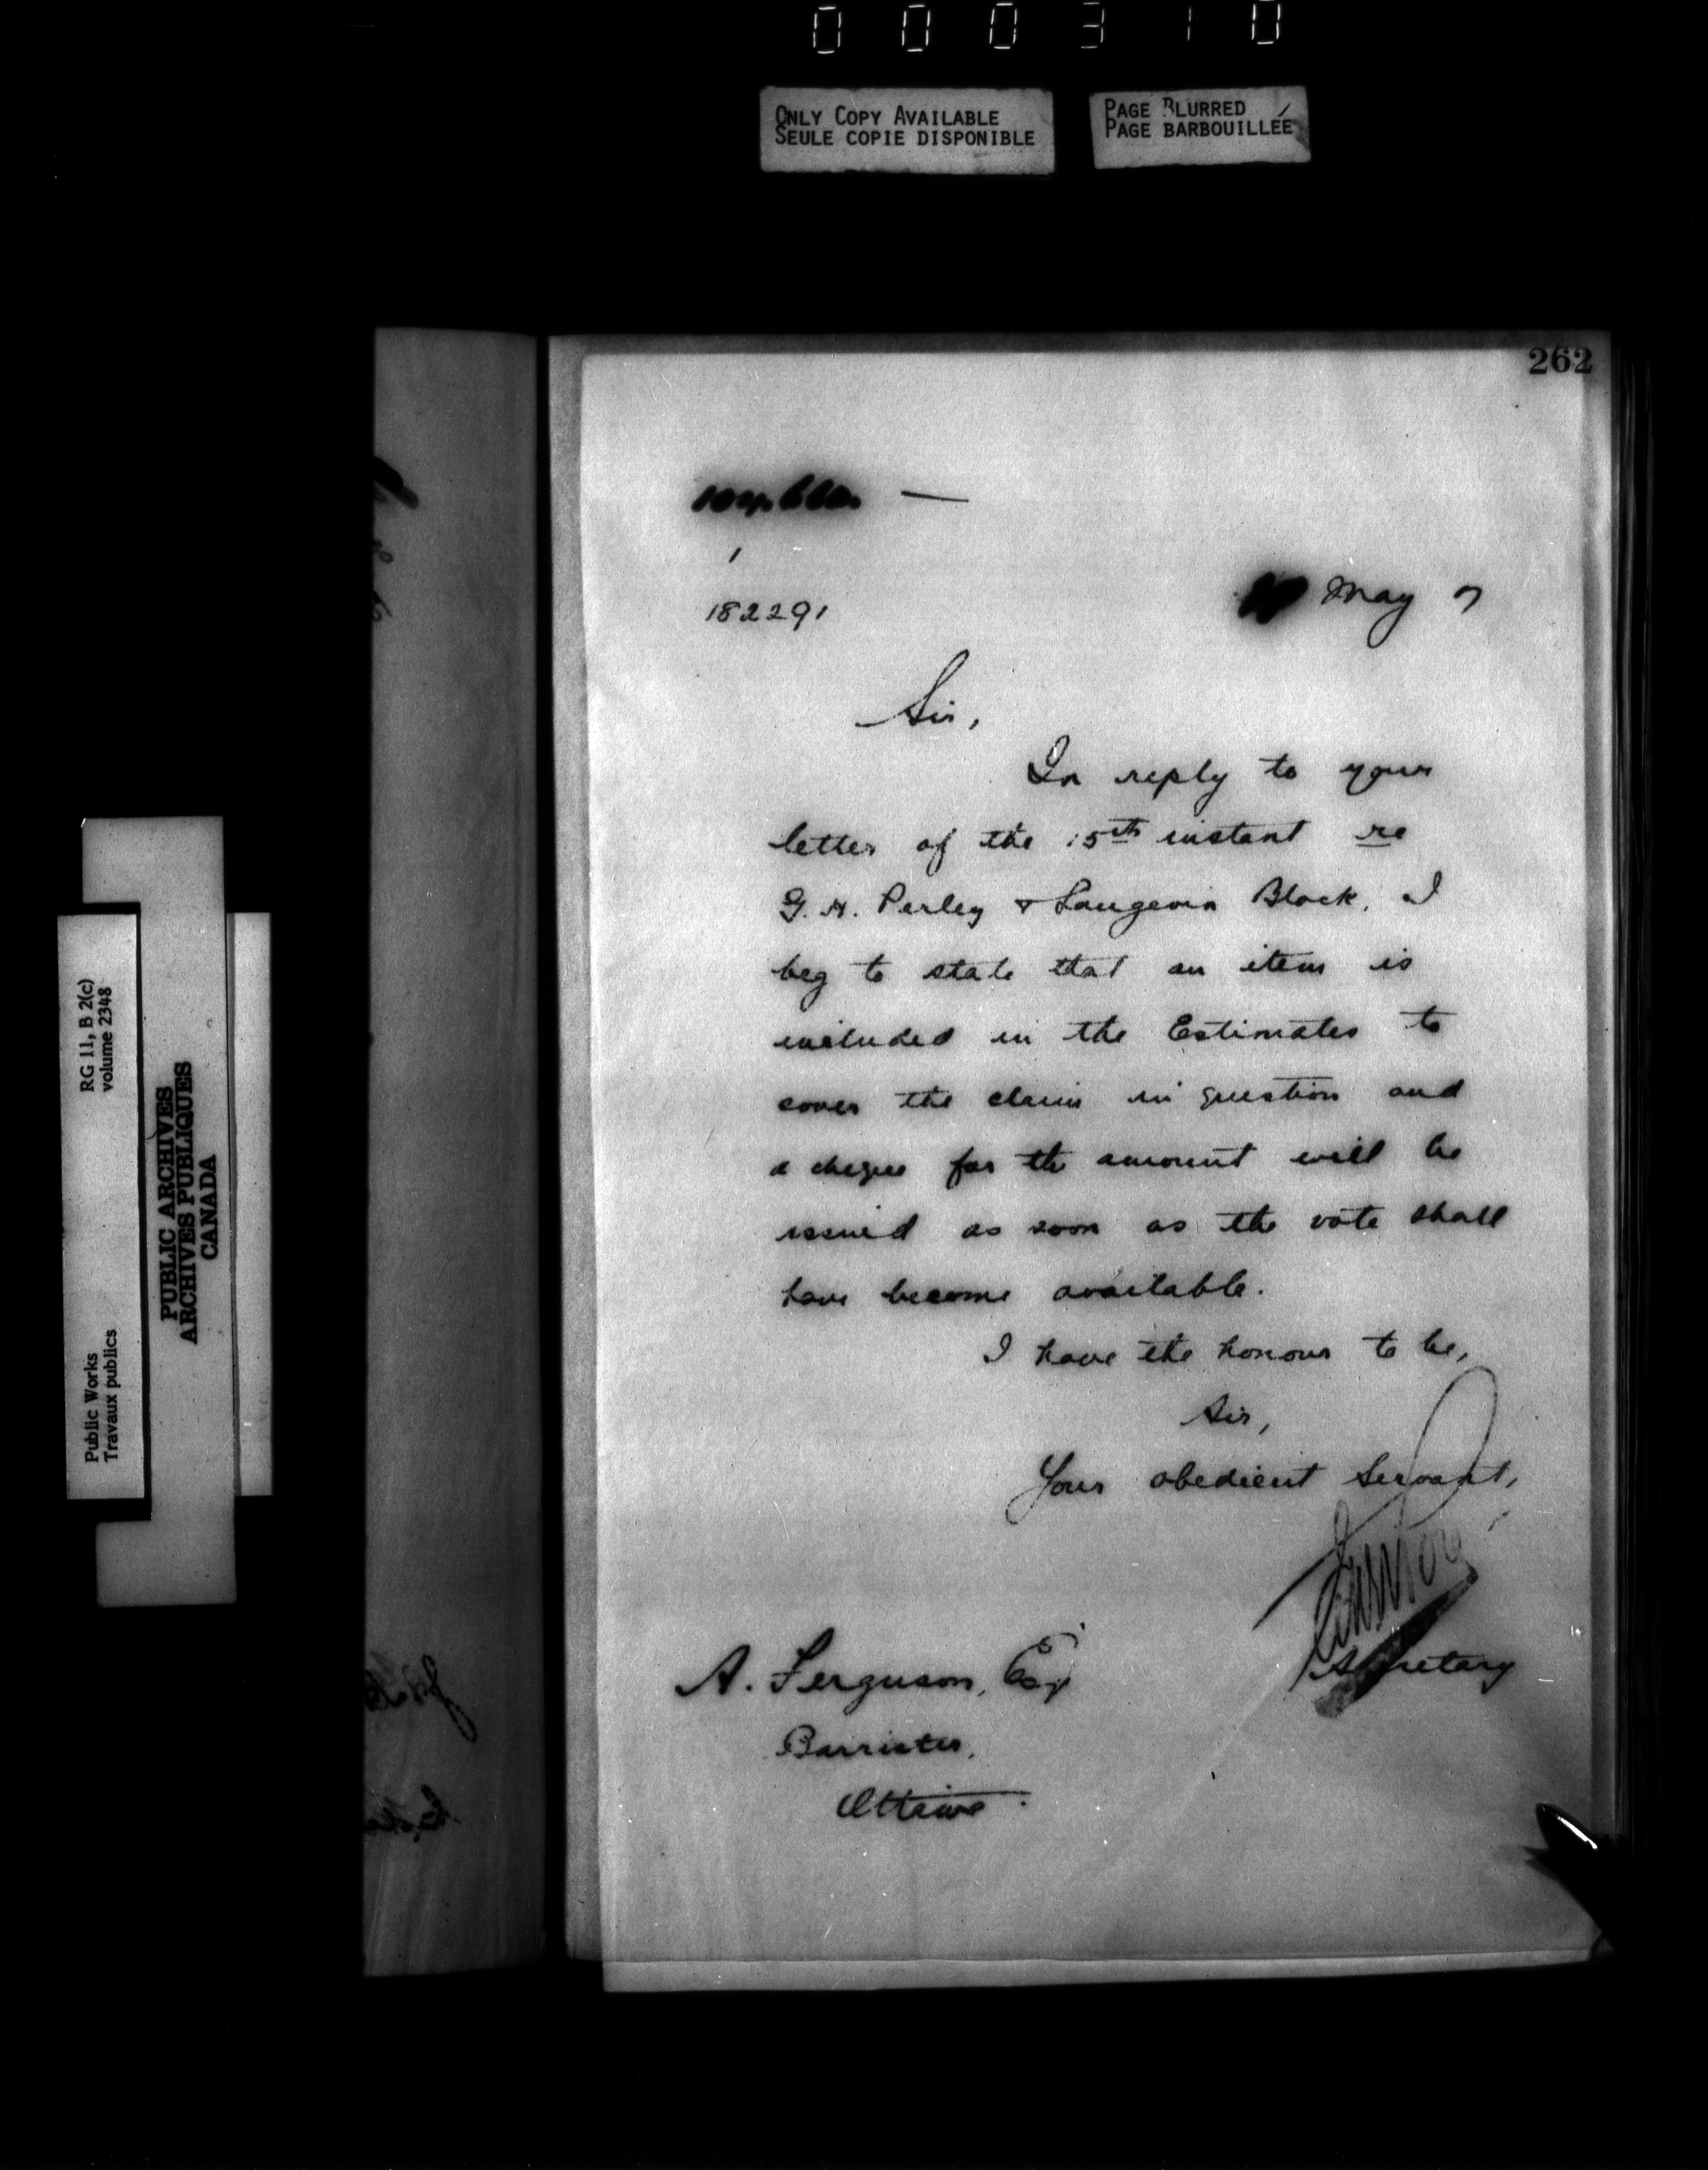 000310
ONLY COPY AVAILABLE
SEULE COPIE DISPONIBLE
PAGE BLURRED
PAGE BARBOUILLÉE
262
182291
May 7
Sir,
In reply to your
letter of the 15th instant re
G. H. Perley & Langevin Block, I
beg to state that an item is
included in the Estimates to
cover the claim in question and
a cheque for the amount will be
issued as soon as the vote shall
have become available.
I have the honour to be,
Sir,
Your obedient Servant,
Secretary
A. Ferguson, Esq
Barrister,
Ottawa.
RG 11, B 2(c)
volume 2348
Public Works
Travaux publics
PUBLIC ARCHIVES
ARCHIVES PUBLIQUES
CANADA